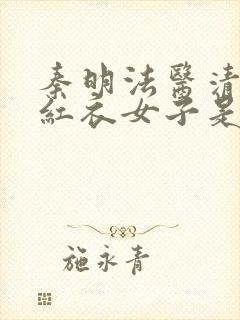 秦明法醫清
紅衣女子是
施永青